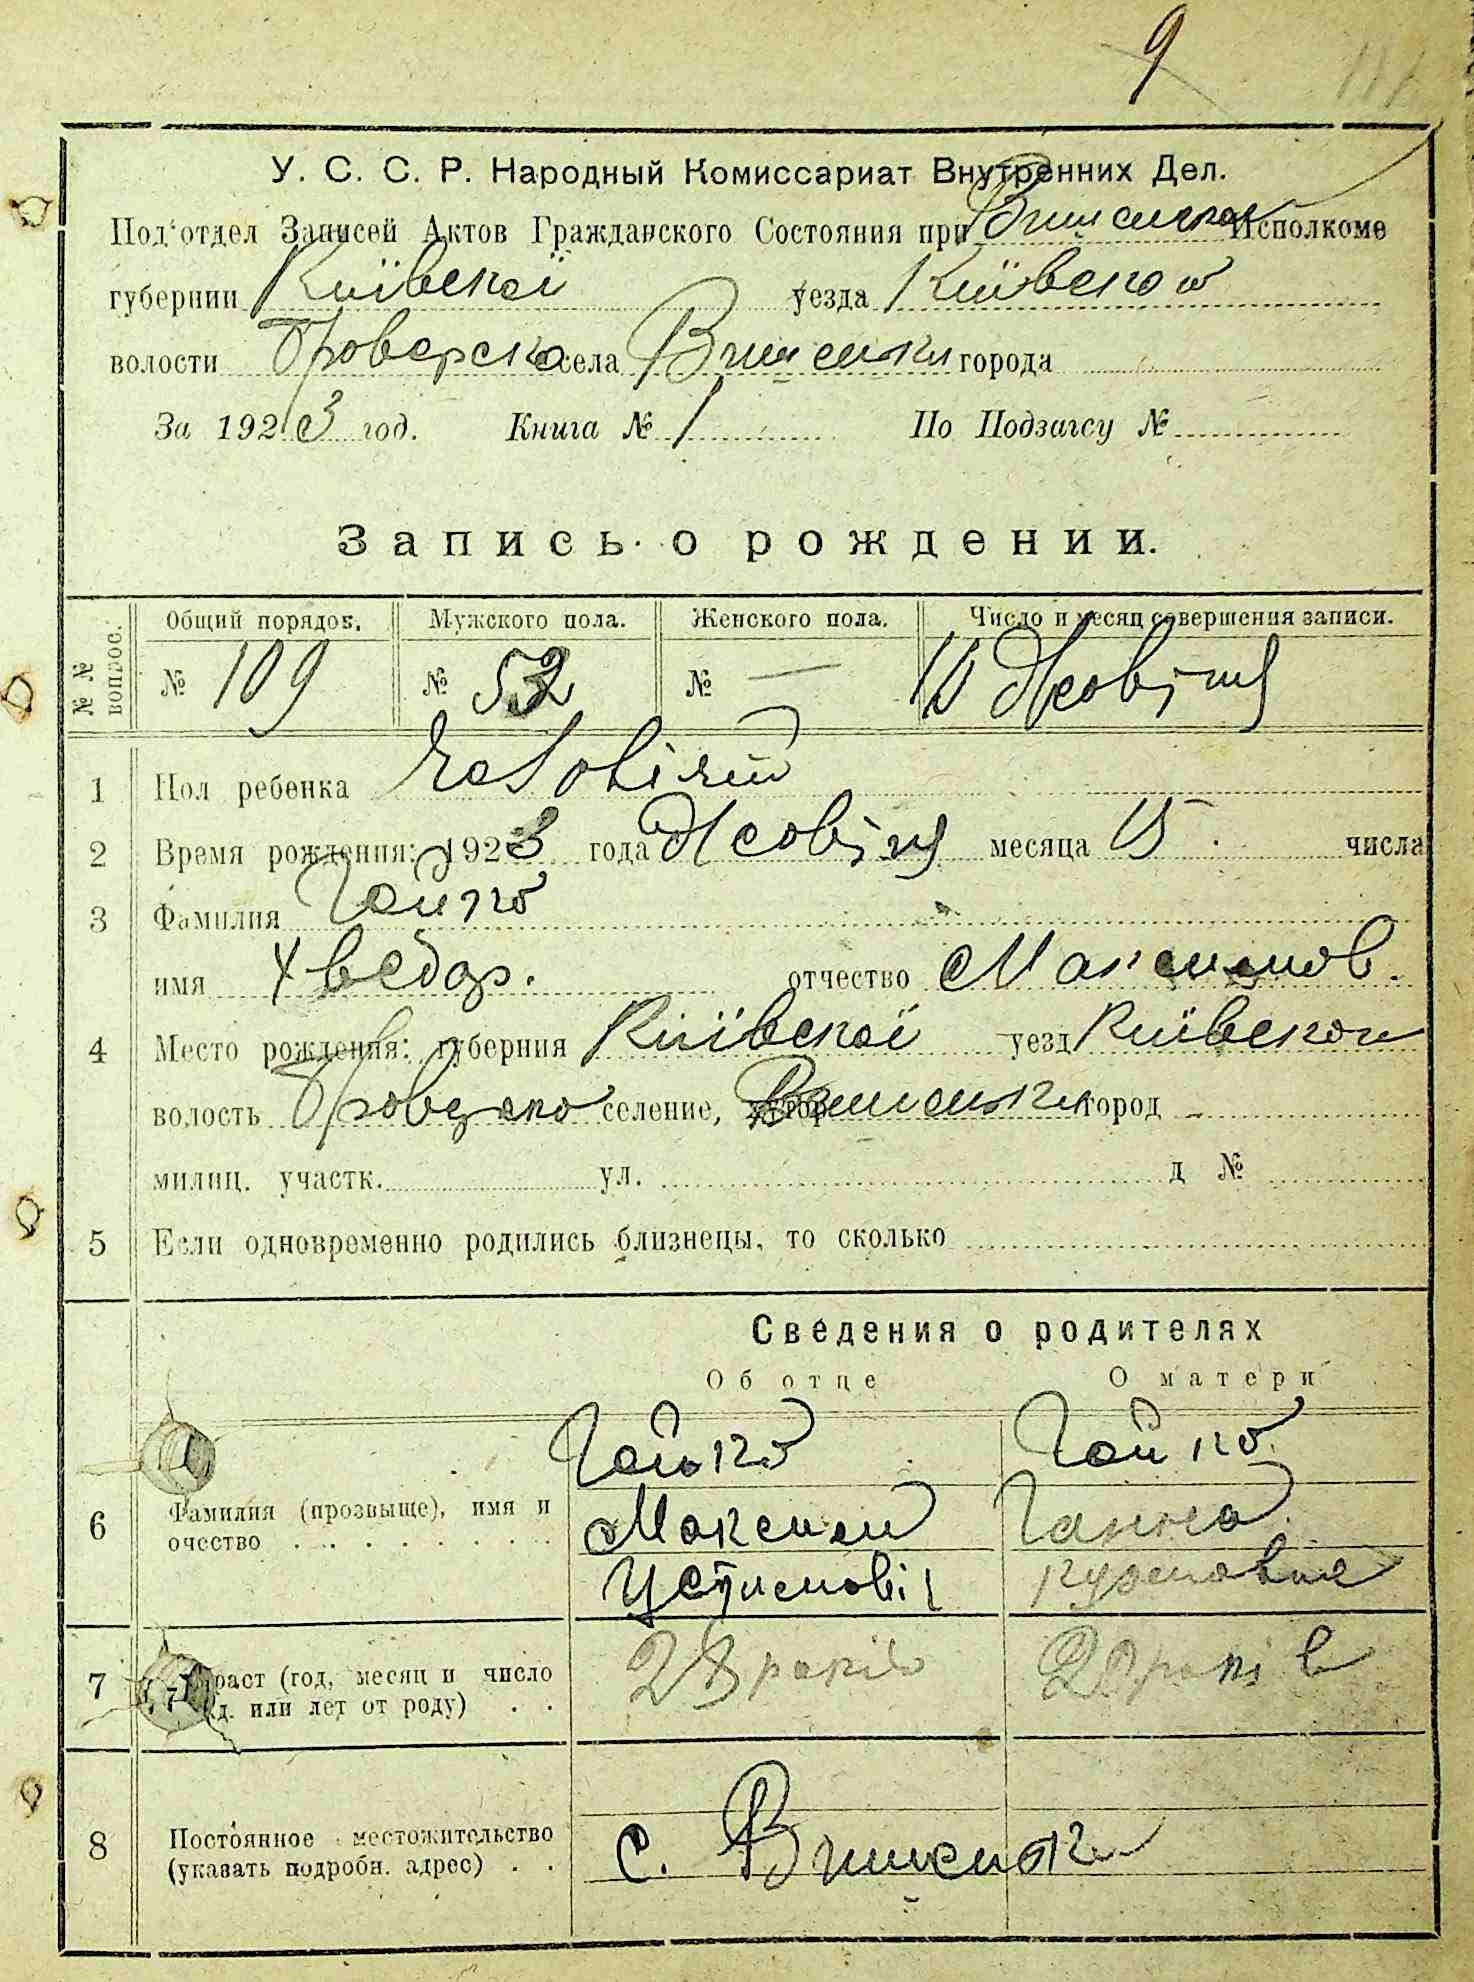 9
У. С. С. Р. Народный Комиссариат Внутренних Дел.
Под'отдел Записей Актов Гражданского Состояния при Вишеньк Исполкоме
губернии Київскої уезда Київсков
волости Броварско села Вишеньки города
За 1923 год. Книга № 1 По Подзагсу №
Запись о рождении.
№ № вопрос. Общий порядок. Мужского пола. Женского пола. Число и месяц совершения записи.
№ 109 № 52 № — 15 Жовтня
1 Пол ребенка
2 Время рождения: 1923 года Жовтня месяца 15 числа
3 Фамилия Гайко
имя Хведор. отчество Максимов.
4 Место рождения: губерния Київскої уезд Київсков
волость Броварско селение, хутор Вишеньки город
милиц. участк. ул. д №
5 Если одновременно родились близнецы, то сколько
Сведения о родителях
Об отце О матери
Гайко Гайко
6 Фамилия (прозвыще), имя и Максим Ганна
очество Устимовіч
7 раст (год, месяц и число 28 років років
д. или лет от роду)
8 Постоянное местожительство с. Вишеньки
(указать подробн. адрес)